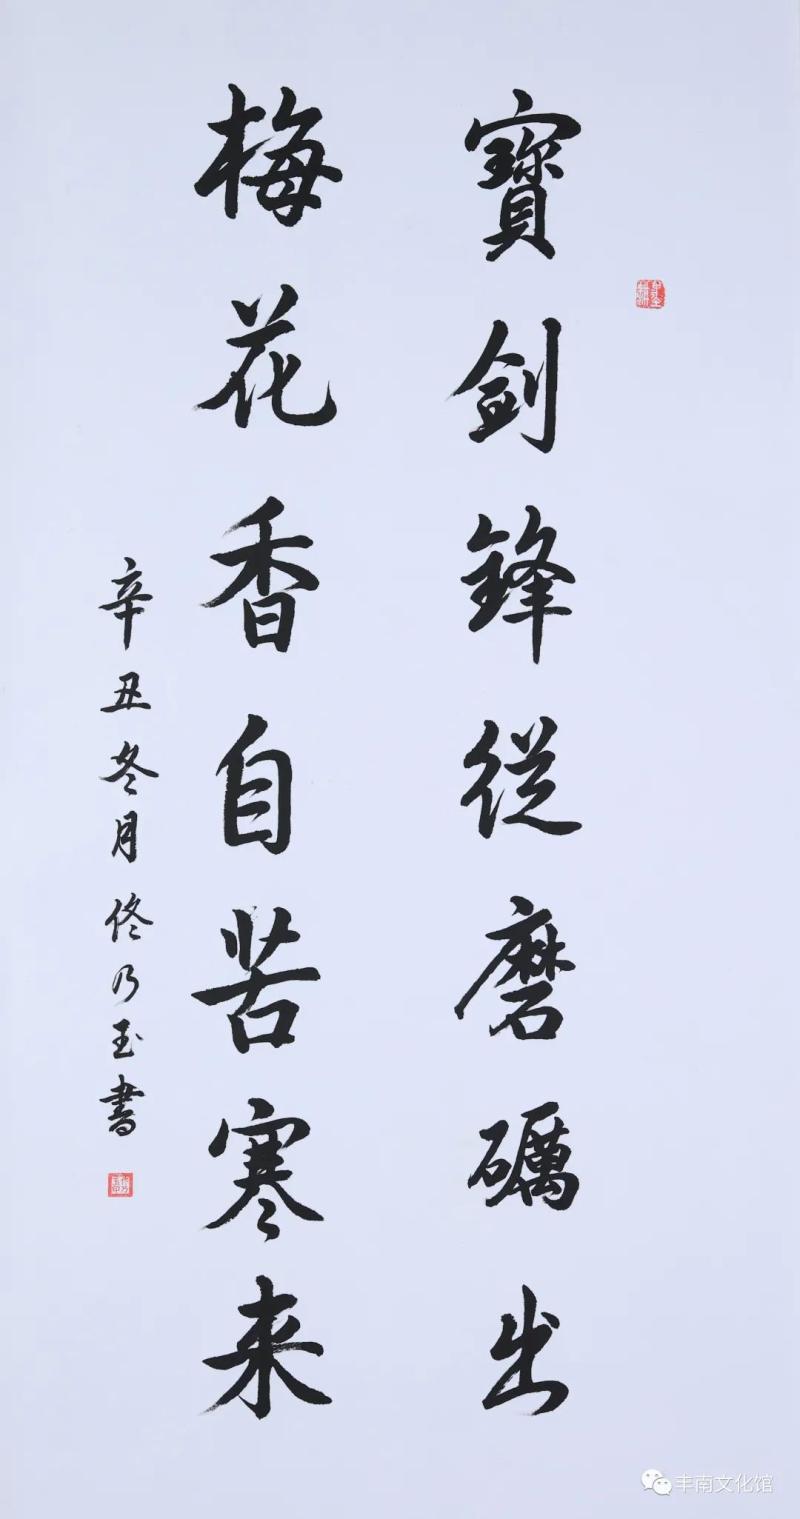 寶劍鋒從磨礪出
梅花香自苦寒来
辛丑冬月佟乃玉書
丰南文化馆